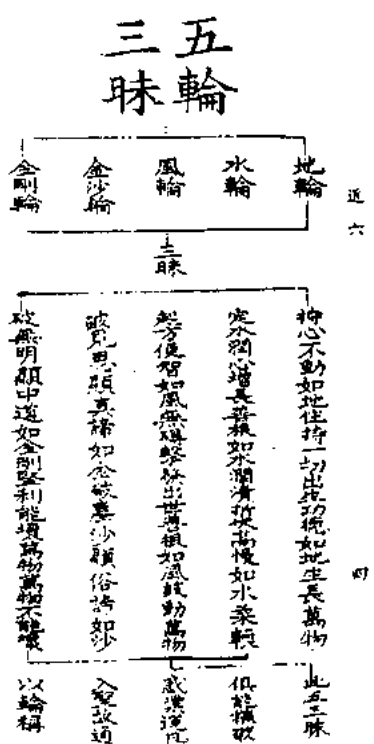 五輪
三昧
地輪
水輪
風輪
金沙輪
金剛輪
三昧
持心不動如地住持一切出生功德如地生長萬物
定水潤心增長善根如水潤漬折伏高慢如水柔輭
起方便智如風無礙擊發出世善根如風鼓動萬物
破見思顯真諦如金破塵沙顯俗諦如沙
破無明顯中道如金剛堅利能壞萬物萬物不能壞
此五三昧
俱能摧破
惑業運凡
入聖故通
以輪稱
四